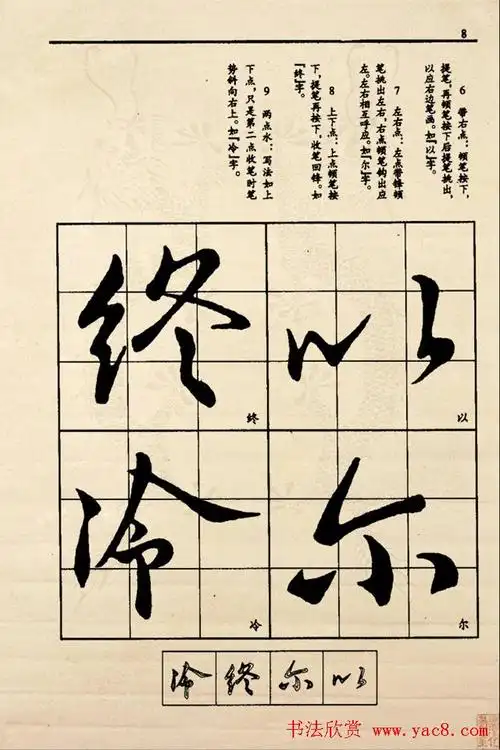 8
6 带右点：顿笔按下，
提笔，再顿笔按下后提笔挑出，
以应右边笔画。如『以』字。
7 左右点：左点带锋顿
笔挑出左右，右点顿笔钩出应
左。左右相互呼应。如『尔』字。
8 上下点：上点顿笔按
下，提笔再按下，收笔回锋。如
『终』字。
9 两点水：写法如上
下点，只是第二点收笔时笔
势斜向右上。如『冷』字。
以
以
尔
尔
终
终
冷
冷
以 尔 终 冷
书法欣赏 www.yac8.com